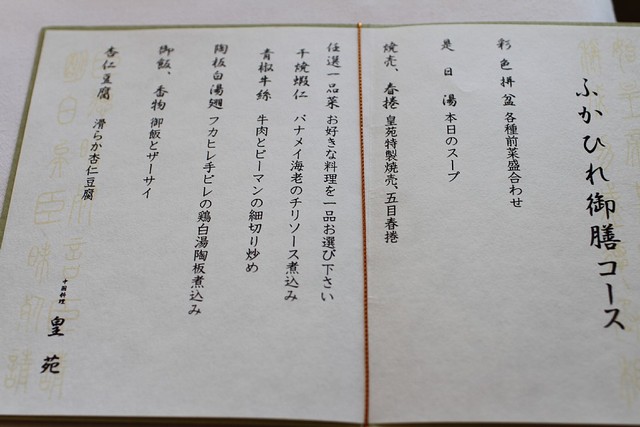 ふかひれ御膳コース
彩色拼盆 各種前菜盛合わせ
是日湯 本日のスープ
焼売、春捲 皇苑特製焼売、五目春捲
任選一品菜 お好きな料理を一品お選び下さい
干焼蝦仁 バナメイ海老のチリソース煮込み
青椒牛絲 牛肉とピーマンの細切り炒め
陶板白湯翅 フカヒレ手ビレの鶏白湯陶板煮込み
御飯、香物 御飯とザーサイ
杏仁豆腐 滑らか杏仁豆腐
中国料理 皇苑